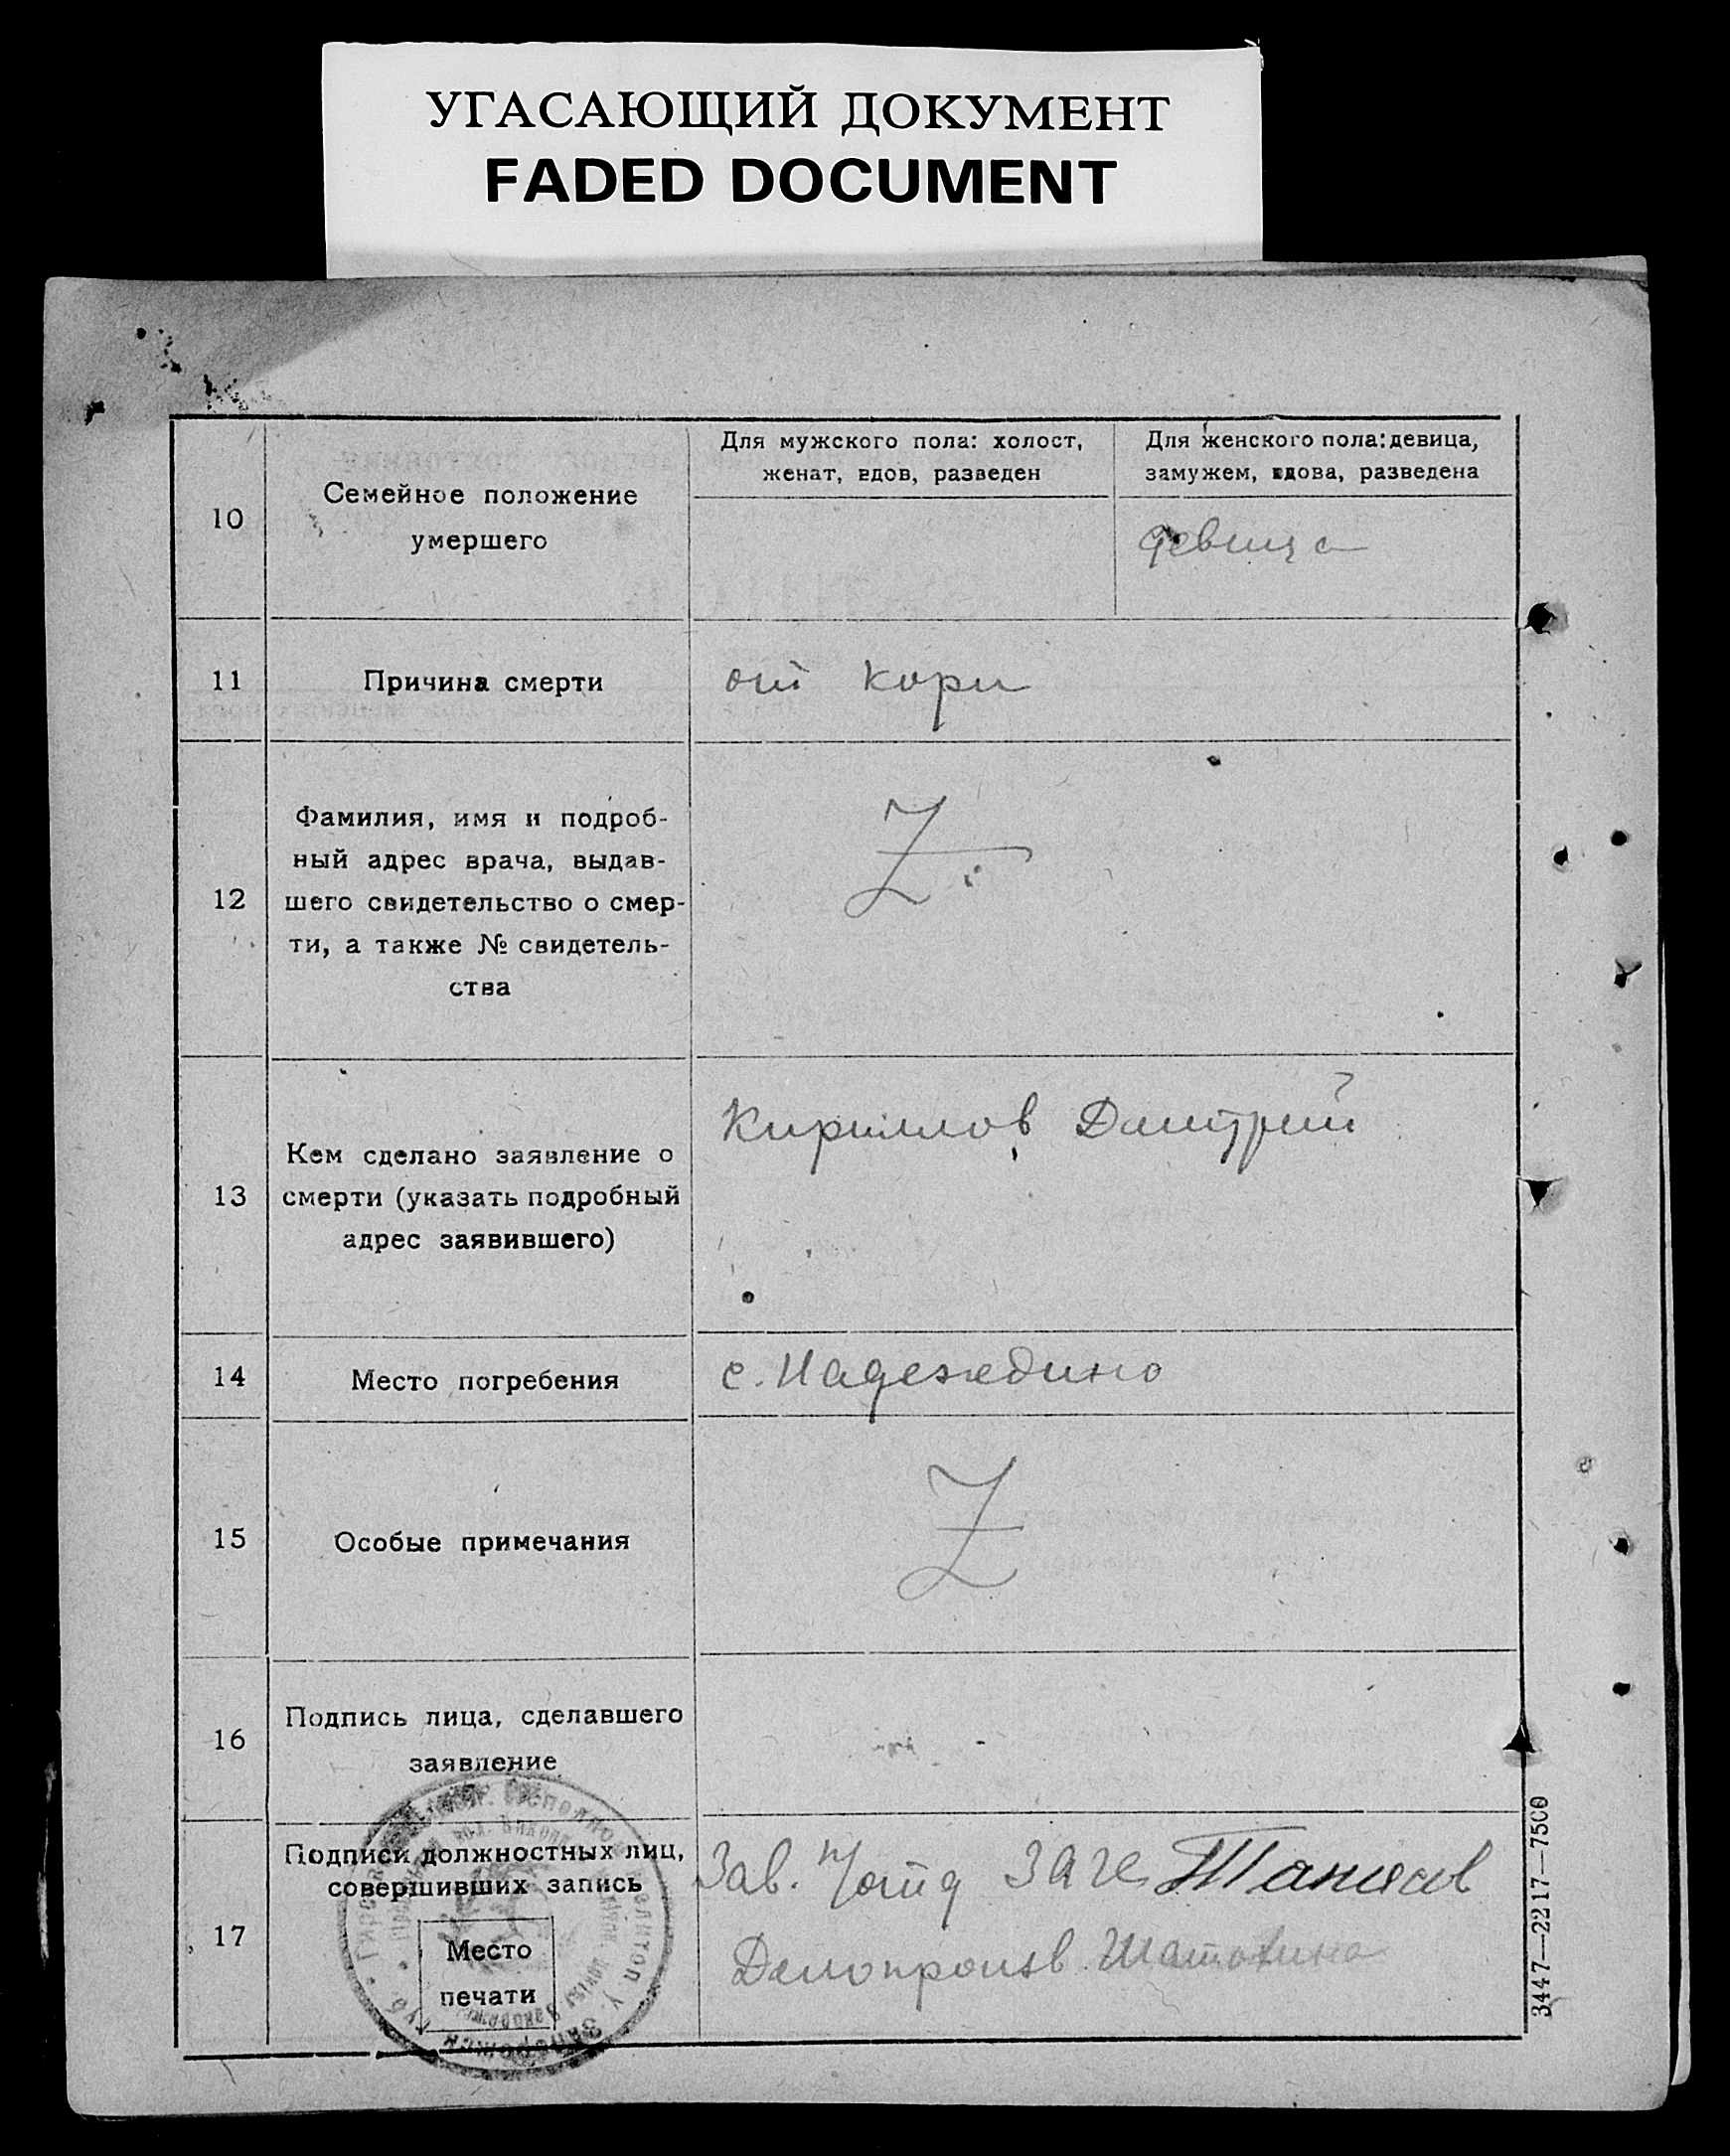 УГАСАЮЩИЙ ДОКУМЕНТ
FADED DOCUMENT
10
Семейное положение
умершего
Для мужского пола: холост,
женат, вдов, разведен
Для женского пола: девица,
замужем, вдова, разведена
девица
11
Причина смерти
от кори
12
Фамилия, имя и подроб-
ный адрес врача, выдав-
шего свидетельство о смер-
ти, а также № свидетель-
ства
Z
13
Кем сделано заявление о
смерти (указать подробный
адрес заявившего)
Кириллов Дмитрий
14
Место погребения
с. Надеждино
15
Особые примечания
Z
16
Подпись лица, сделавшего
заявление
17
Подписи должностных лиц,
совершивших запись
Место
печати
Зав. п/отд ЗАГС
Делопроизв.
3447—2217—7500